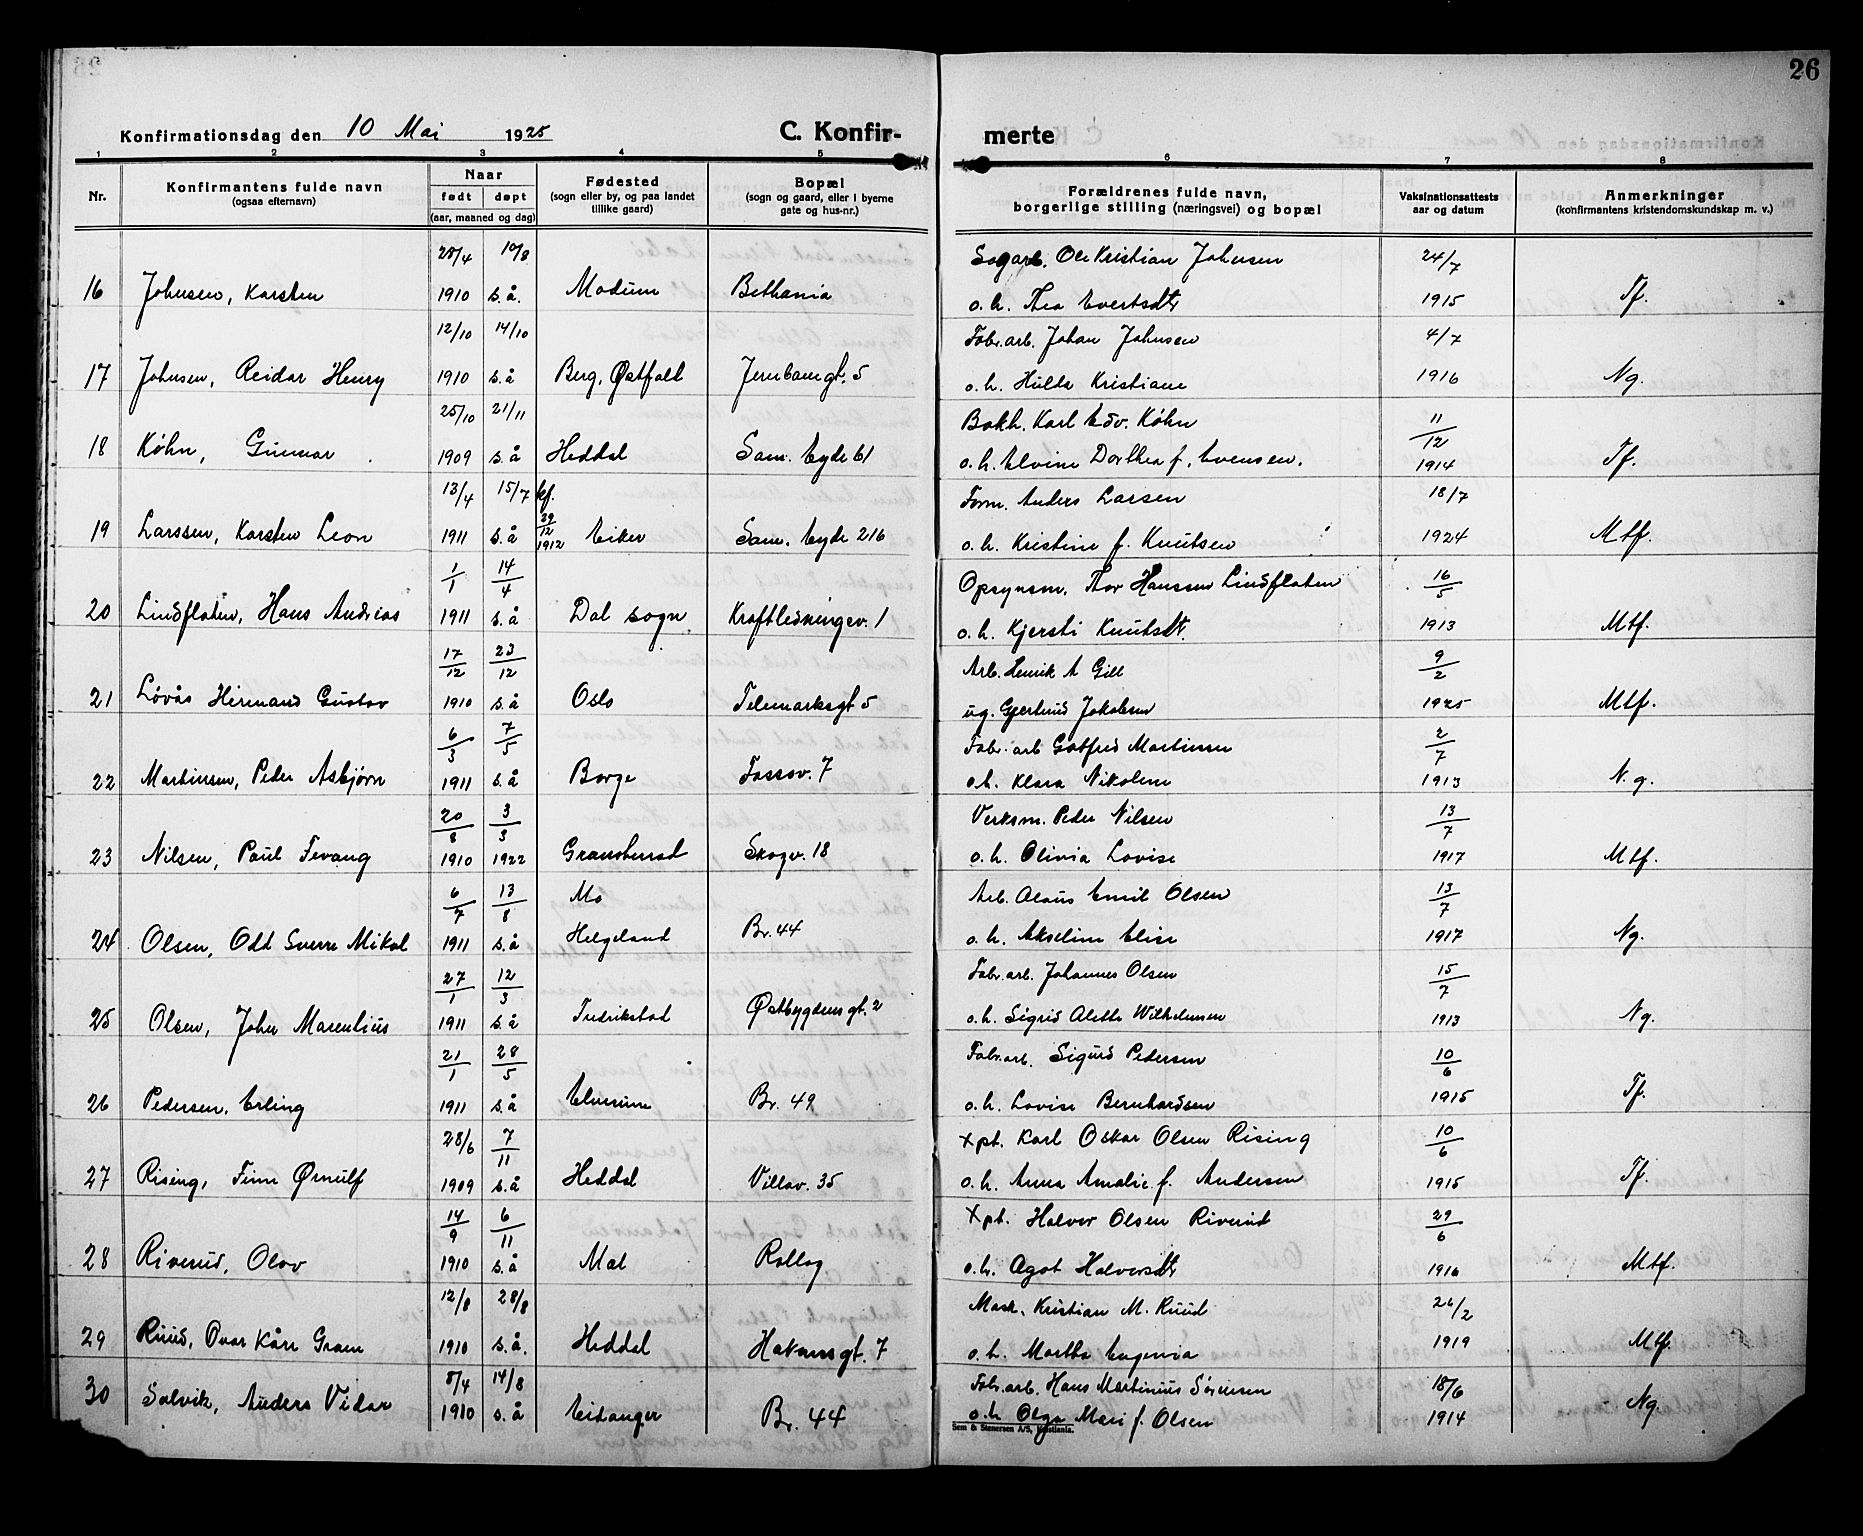 26
Konfirmationsdag den 10 Mai 1925 C. Konfir- merte
1 2 3 4 5 6 7 8
Nr. Konfirmantens fulde navn (ogsaa efternavn) Naar født døpt (aar, maaned og dag) Fødested (sogn eller by, og paa landet tillike gaard) Bopæl (sogn og gaard, eller i byerne gate og hus-nr.) Forældrenes fulde navn, borgerlige stilling (næringsvei) og bopæl Vaksinationsattests aar og datum Anmerkninger (konfirmantens kristendomskundskap m. v.)
28/4 10/8 Sagarb. Ole Kristian Johnsen 24/7
16 Johnsen, Karsten 1910 s.å. Modum Bethania o.h. Thea Evertsdtr 1915 Tf.
12/10 14/10 Fabr.arb. Johan Johnsen 4/7
17 Johnsen, Reidar Henry 1910 s.å Berg, Østfoll Jernbanegt. 5 o.h. Hulda Kristiane 1916 Ng.
25/10 21/11 Bokh. Karl Edv. Køhn 11/12
18 Køhn, Gunnar 1909 s.å Heddal Sam. Eyde 61 o.h. Elvine Dorthea f. Evensen. 1914 Tf.
13/4 15/7 kf. 29/12 1912 Form. Anders Larsen 18/7
19 Larssen, Karsten Leon 1911 s.å Eiker Sam. Eyde 216 o.h. Kristine f. Knutsen 1924 Mtf.
1/1 14/4 Opsynsm. Thor Hanssen Lindflaten 16/5
20 Lindflaten, Hans Andreas 1911 s.å Dal sogn Kraftledningsv. 1 o.h. Kjersti Knutsdt. 1913 Mtf.
17/12 23/12 Arb. Henrik A Gill 9/2
21 Løvås Hermand Gustav 1910 s.å Oslo Telemarksgt 5 ug. Gjertrud Jakobsen 1925 Mtf.
6/3 7/5 Fabr. arb Gotfred Martinsen 2/7
22 Martinsen, Peder Asbjørn 1911 s.å Borge Fossov. 7 o.h. Klara Nikoline 1913 N.g.
20/8 3/3 Verksm. Peder Nilsen 13/7
23 Nilsen, Paul Fevang 1910 1922 Gransherad Skogv. 18 o.h. Olivia Lovise 1917 Mtf.
6/7 13/8 Mo Arb. Olaus Emil Olsen 13/7
24 Olsen, Odd Sverre Mikal 1911 s.å Helgeland Br. 44 o.h. Akseline Elise 1917 Ng.
27/1 12/3 Fabr.arb. Johannes Olsen 15/7
25 Olsen, John Marenlius 1911 s.å Fredrikstad Østbygdens gt. 2 o.h. Sigrid Alette Wilhelmsen 1913 Ng.
21/1 28/5 Fabr.arb. Sigurd Pedersen 10/6
26 Pedersen, Erling 1911 s.å Elverum Br. 49 o.h. Lovise Bernhardsen 1915 Tf.
28/6 7/11 Xpt. Karl Oskar Olsen Rising 10/6
27 Rising, Finn Ørnulf 1909 s.å Heddal Villav. 35 o.h. Anna Amalie f. Andersen 1915 Tf.
14/9 6/11 Xpt. Halvor Olsen Riverud 29/6
28 Riverud, Olav 1910 s.å Mæl Rollag o.h. Agot Halvorsdtr 1916 Mtf.
12/8 28/8 Mask. Kristian M. Ruud 26/2
29 Ruud, Ovar Kåre Gram 1910 s.å. Heddal Hakonsgt. 7 o.h. Martha Eugenia 1919 Mtf.
8/4 14/8 Fabr.arb. Hans Martinius Sørensen 18/6
30 Solvik, Anders Vidar 1910 s.å Eidanger Br. 44 o.h Olga Mari f. Olsen 1914 Ng.
Sem & Stenersen A/S, Kristiania.